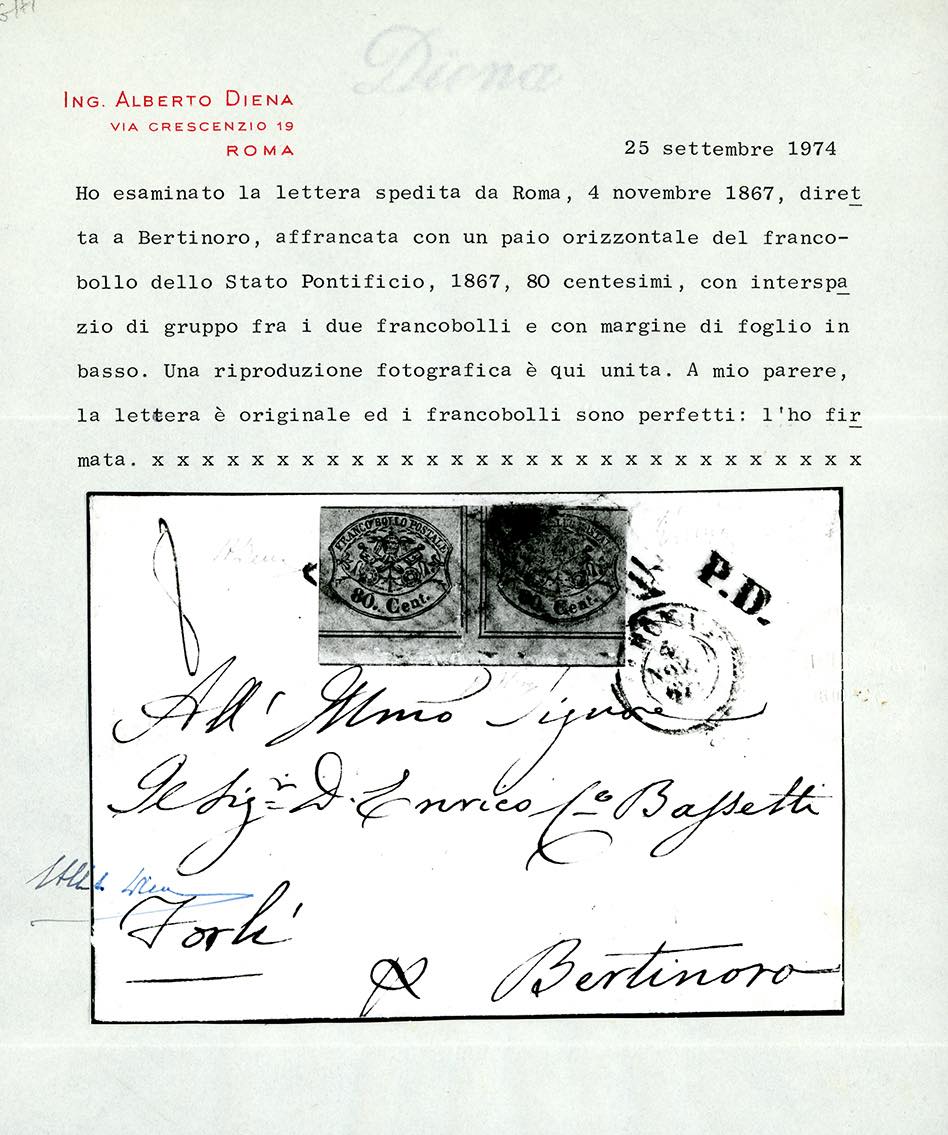 Diena
ING. ALBERTO DIENA
VIA CRESCENZIO 19
ROMA
25 settembre 1974
Ho esaminato la lettera spedita da Roma, 4 novembre 1867, diret
ta a Bertinoro, affrancata con un paio orizzontale del franco-
bollo dello Stato Pontificio, 1867, 80 centesimi, con interspa
zio di gruppo fra i due francobolli e con margine di foglio in
basso. Una riproduzione fotografica è qui unita. A mio parere,
la lettera è originale ed i francobolli sono perfetti: l'ho fir
mata. x x x x x x x x x x x x x x x x x x x x x x x x x x x x x
FRANCO BOLLO POSTALE
80. Cent.
80. Cent.
P.D.
ROMA
4
67
All' Illmo Signore
Il Sigr: D. Enrico Co Bassetti
Forlì
Bertinoro